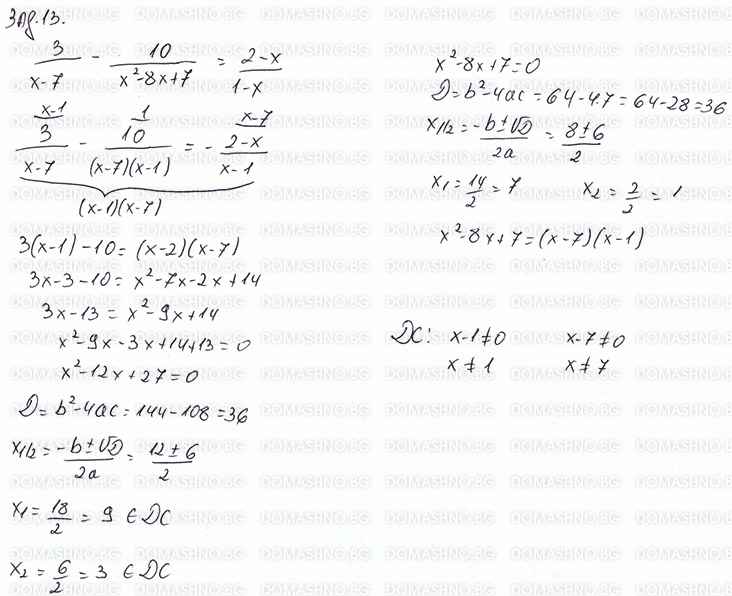 Зад. 13.
3/(x-7) - 10/(x²-8x+7) = (2-x)/(1-x)
x-1 1 x-7
3/(x-7) - 10/((x-7)(x-1)) = - (2-x)/(x-1)
(x-1)(x-7)
3(x-1)-10=(x-2)(x-7)
3x-3-10=x²-7x-2x+14
3x-13=x²-9x+14
x²-9x-3x+14+13=0
x²-12x+27=0
D=b²-4ac=144-108=36
x1/2=(-b±√D)/2a=(12±6)/2
x1=18/2=9 ∈DC
x2=6/2=3 ∈DC
x²-8x+7=0
D=b²-4ac=64-4.7=64-28=36
x1/2=(-b±√D)/2a=(8±6)/2
x1=14/2=7 x2=2/2=1
x²-8x+7=(x-7)(x-1)
DC: x-1≠0 x-7≠0
x≠1 x≠7
DOMASHNO.BG